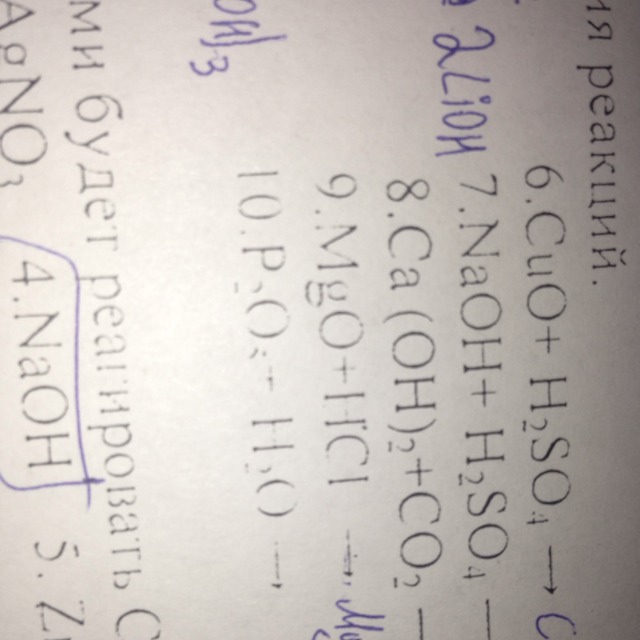 ия реакций.
6.CuO+ H₂SO₄ → C
2LiOH 7.NaOH+ H₂SO₄ —
8.Ca(OH)₂+CO₂ —
9.MgO+HCl →
OH)₃ 10.P₂O₅+ H₂O →
ми будет реагировать C
AgNO₃ 4.NaOH 5. Z